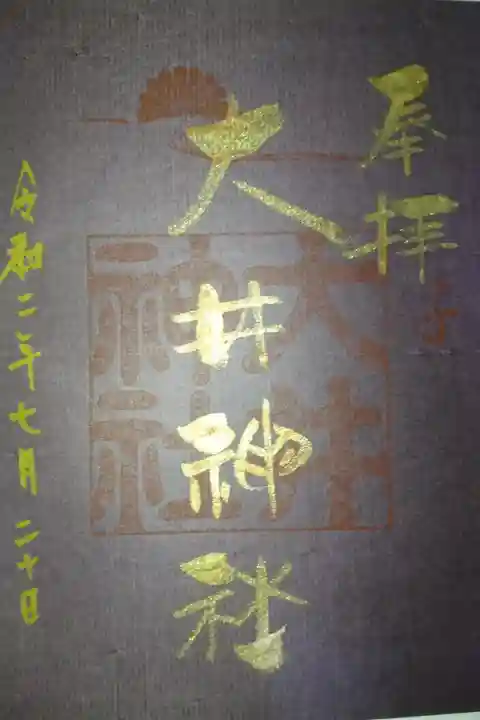 奉拝
大井神社
大井神社
令和二年七月二十日